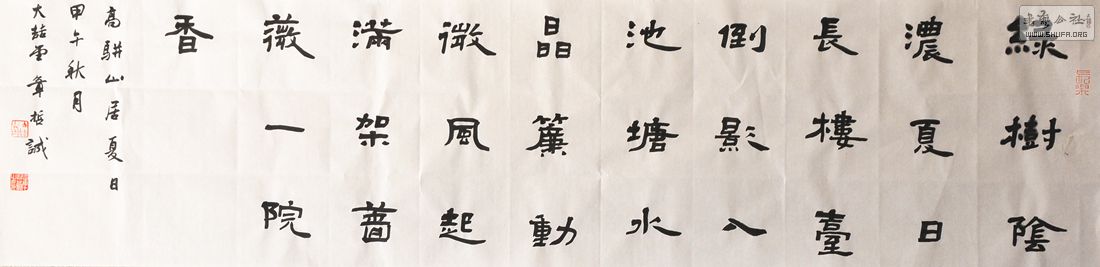 綠樹陰
濃夏日
長樓臺
倒影入
池塘水
晶簾動
微風起
滿架薔
薇一院
香
高駢山居夏日
甲午秋月
大喆堂章誠
公社
WWW.SHUFA.ORG